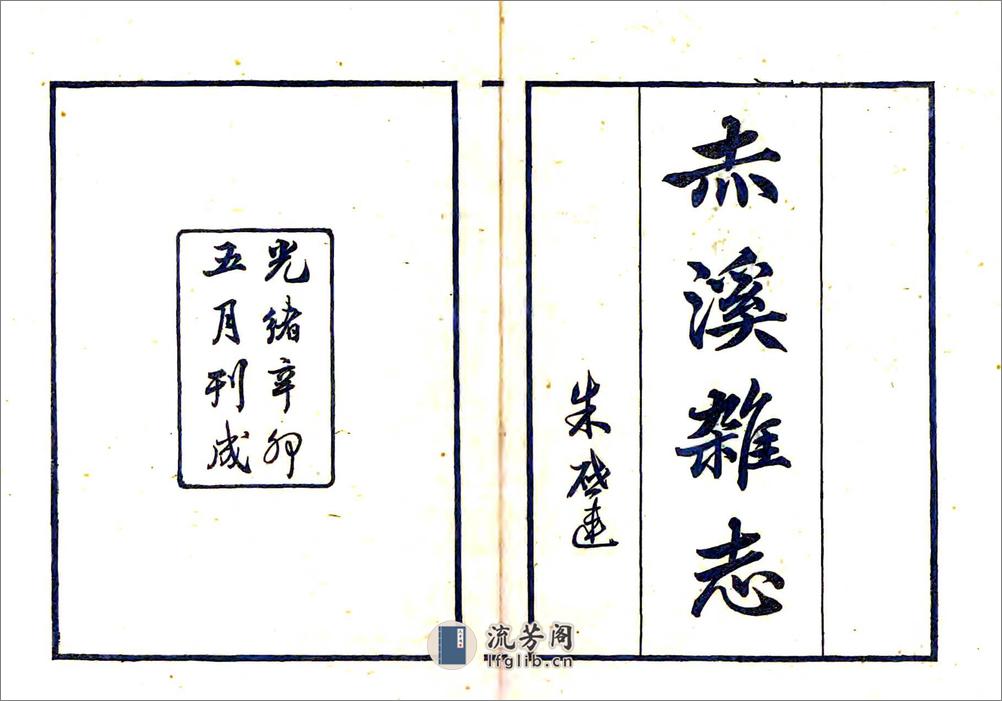 赤溪雜志
朱啟連
光緒辛卯
五月刊成
流芳阁
lfglib.cn